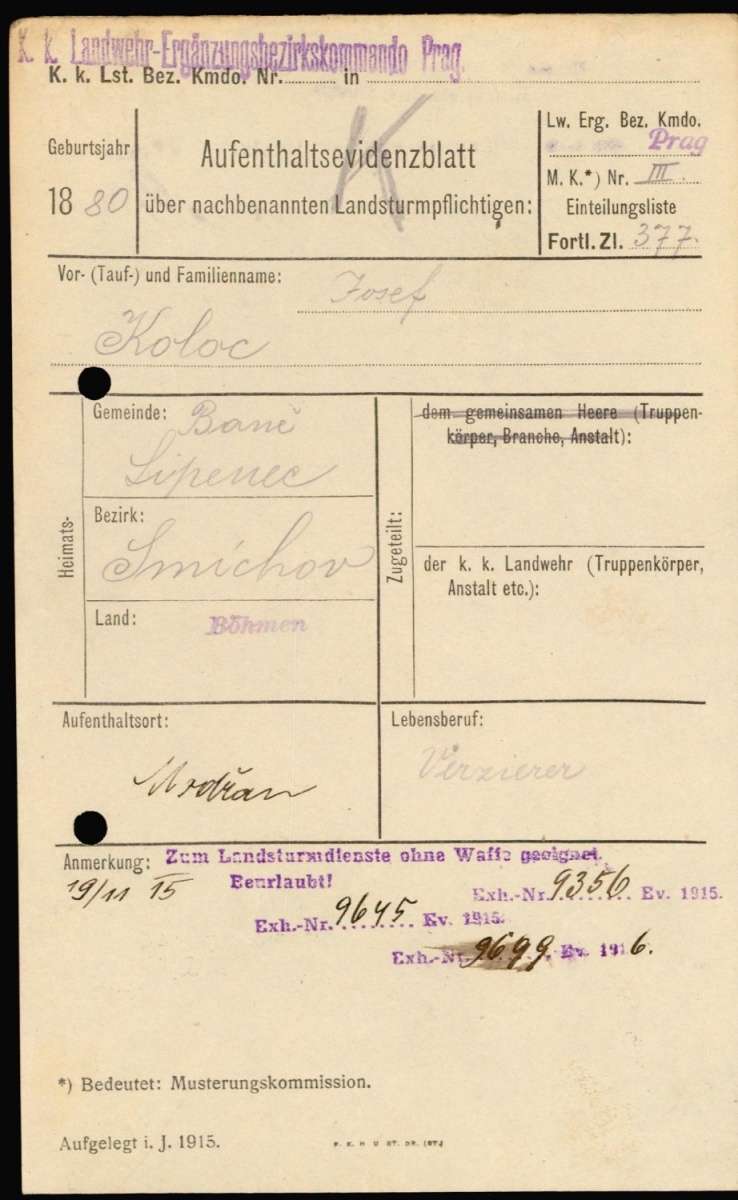 K. k. Landwehr-Ergänzungsbezirkskommando Prag.
K. k. Lst. Bez. Kmdo. Nr. in
K
Geburtsjahr
1880
Aufenthaltsevidenzblatt
über nachbenannten Landsturmpflichtigen:
Lw. Erg. Bez. Kmdo.
Prag
M. K.*) Nr. III.
Einteilungsliste
Fortl. Zl. 377.
Vor- (Tauf-) und Familienname: Josef
Koloc
Heimats-
Gemeinde: Baně
Lipenec
Bezirk:
Smíchov
Land: Böhmen
Zugeteilt:
dem gemeinsamen Heere (Truppen-
körper, Branche, Anstalt):
der k. k. Landwehr (Truppenkörper,
Anstalt etc.):
Aufenthaltsort:
Modřan
Lebensberuf:
Verzierer
Anmerkung: Zum Landsturmdienste ohne Waffe geeignet.
19/11 15 Beurlaubt!
Exh.-Nr. 9356 Ev. 1915.
Exh.-Nr. 9645 Ev. 1915.
Exh.-Nr. 9699 Ev. 1916.
*) Bedeutet: Musterungskommission.
Aufgelegt i. J. 1915.